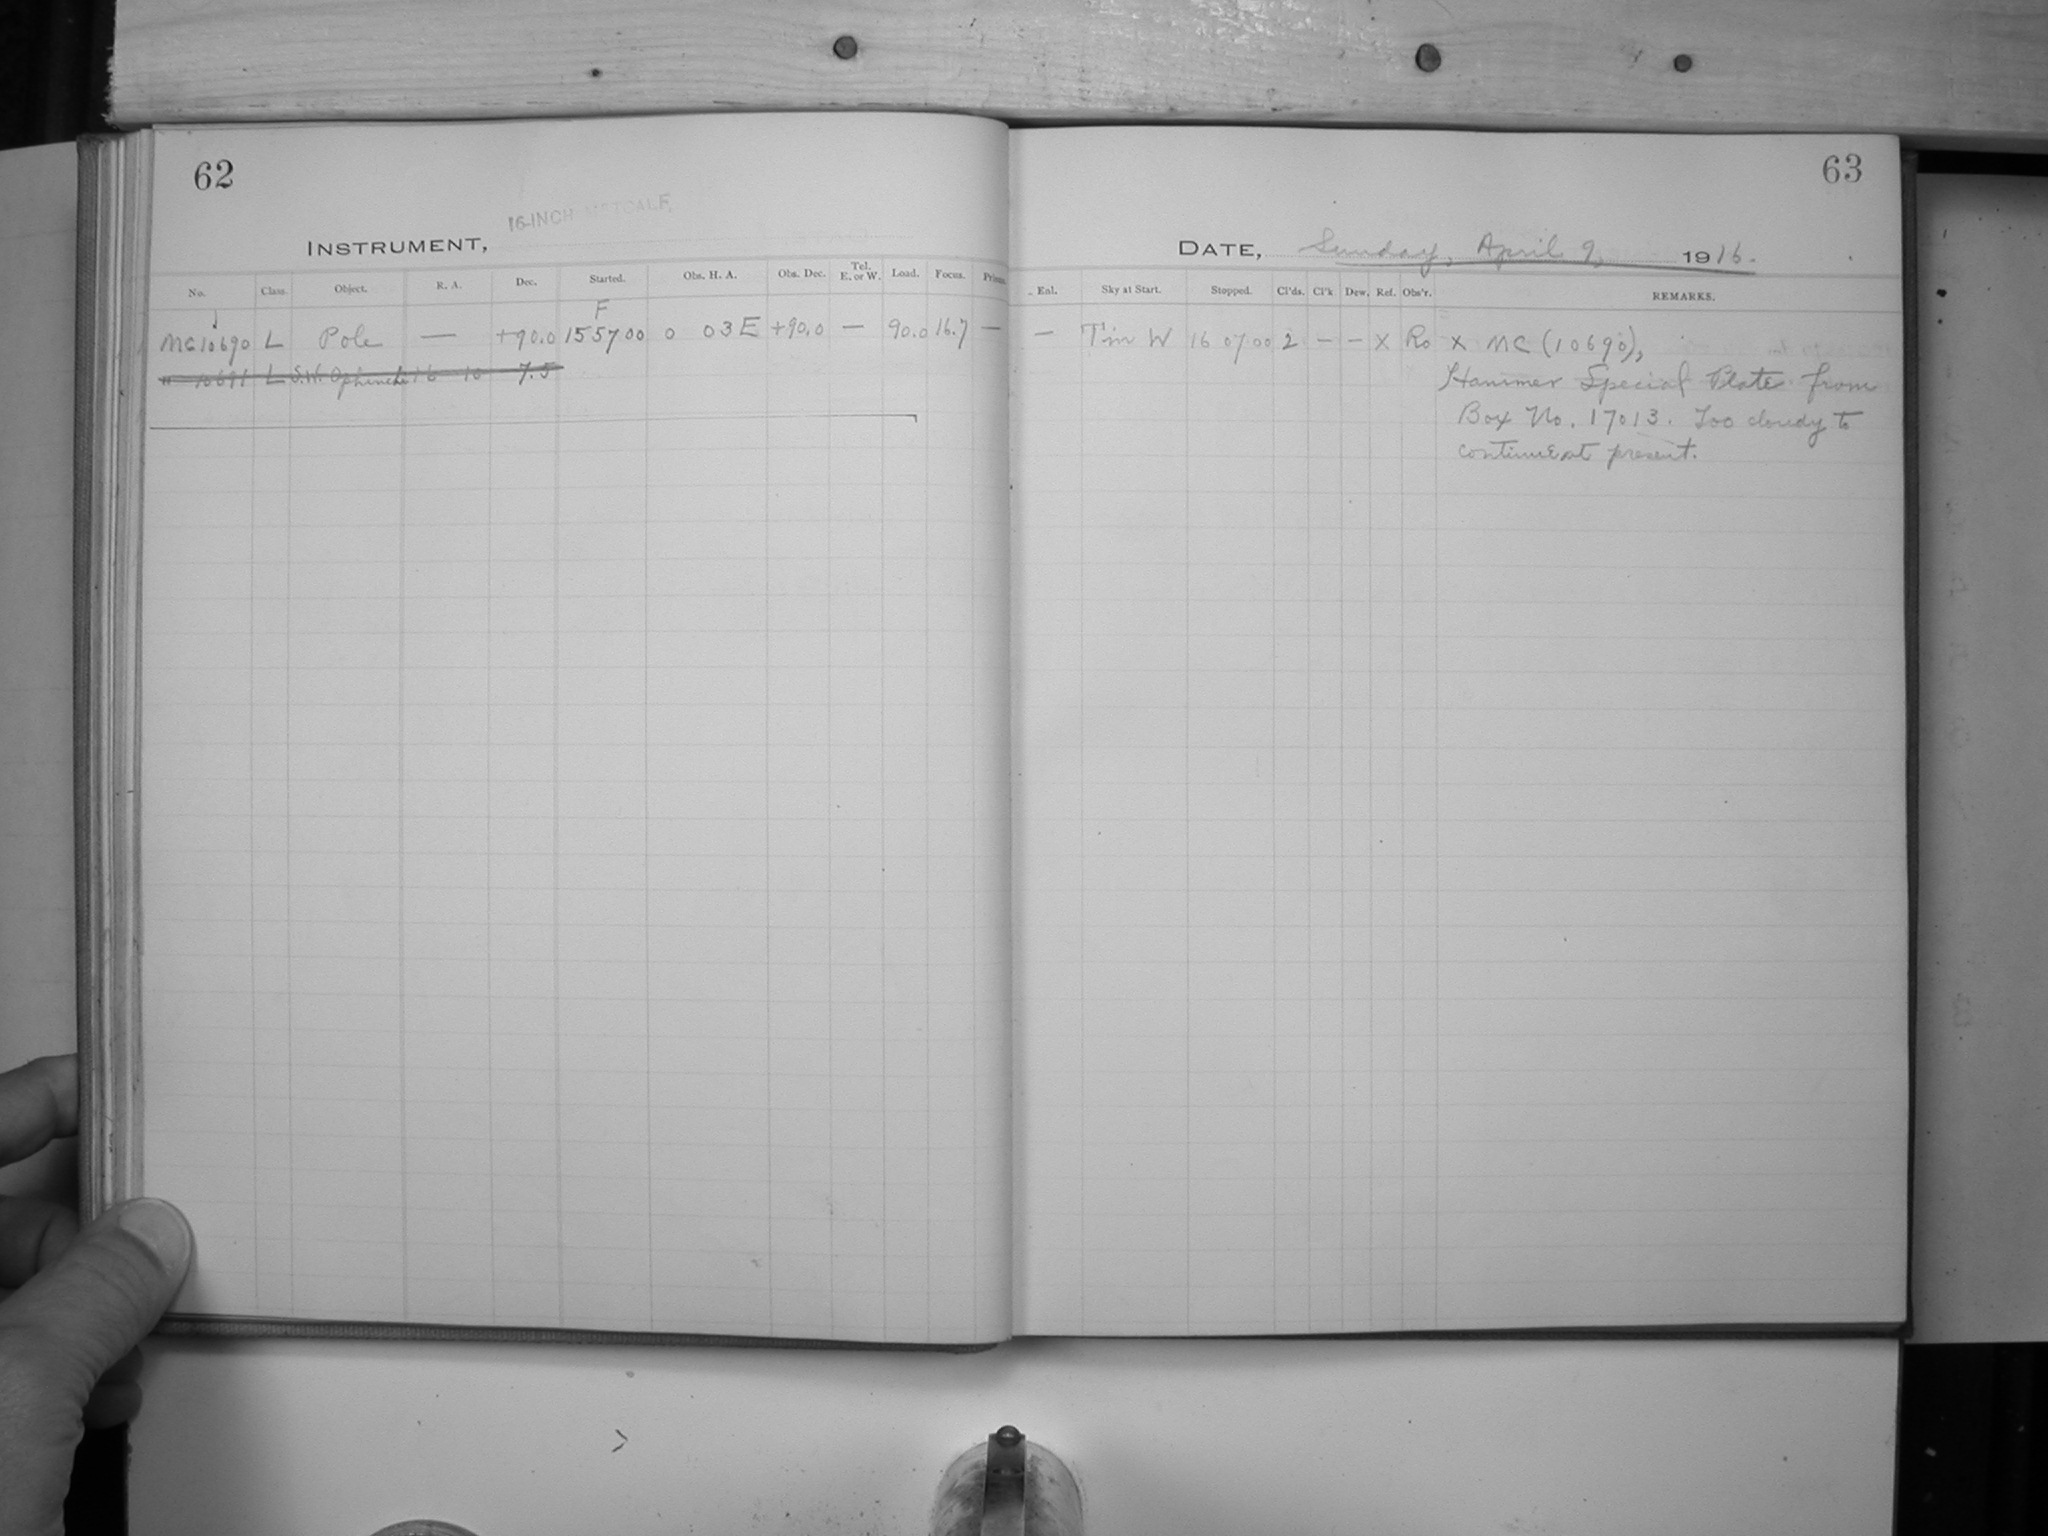 62
16-INCH METCALF,
INSTRUMENT,
No. Class. Object. R. A. Dec. Started. Obs. H. A. Obs. Dec. Tel. E. or W. Load. Focus. Prism
F
MC10690 L Pole — +90.0 15 57 00 0 03 E +90.0 — 90.0 16.7 —
" 10691 L S.W. Ophiuchi 16 10 7.5
63
DATE, Sunday, April 9, 1916.
Enl. Sky at Start. Stopped. Cl'ds. Cl'k Dew. Ref. Obs'r. REMARKS.
— Tin W 16 07 00 2 — — x Ro x MC (10690),
Hammer Special Plate from
Box No. 17013. Too cloudy to
continue at present.